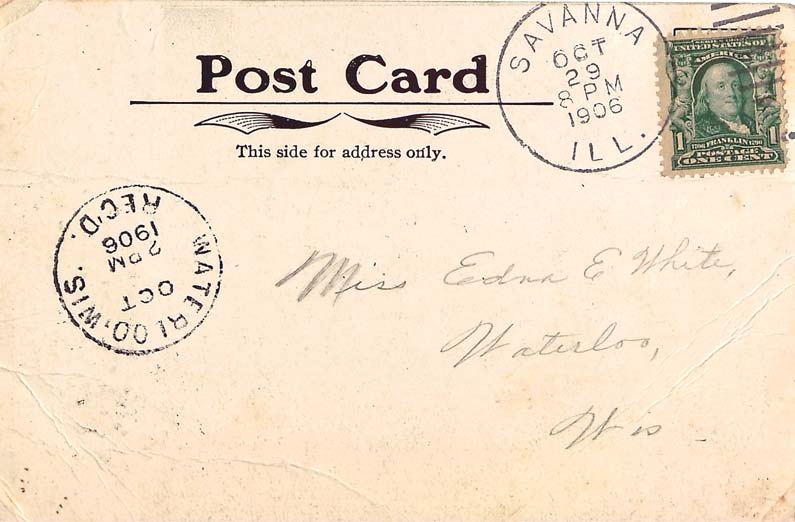 Post Card
This side for address only.
SAVANNA
OCT
29
8 PM
1906
ILL.
UNITED STATES OF
AMERICA
1 1706 FRANKLIN 1790 1
POSTAGE
ONE CENT
WATERLOO, WIS.
OCT
2 PM
1906
REC'D.
Miss Edna E White,
Waterloo,
Wis